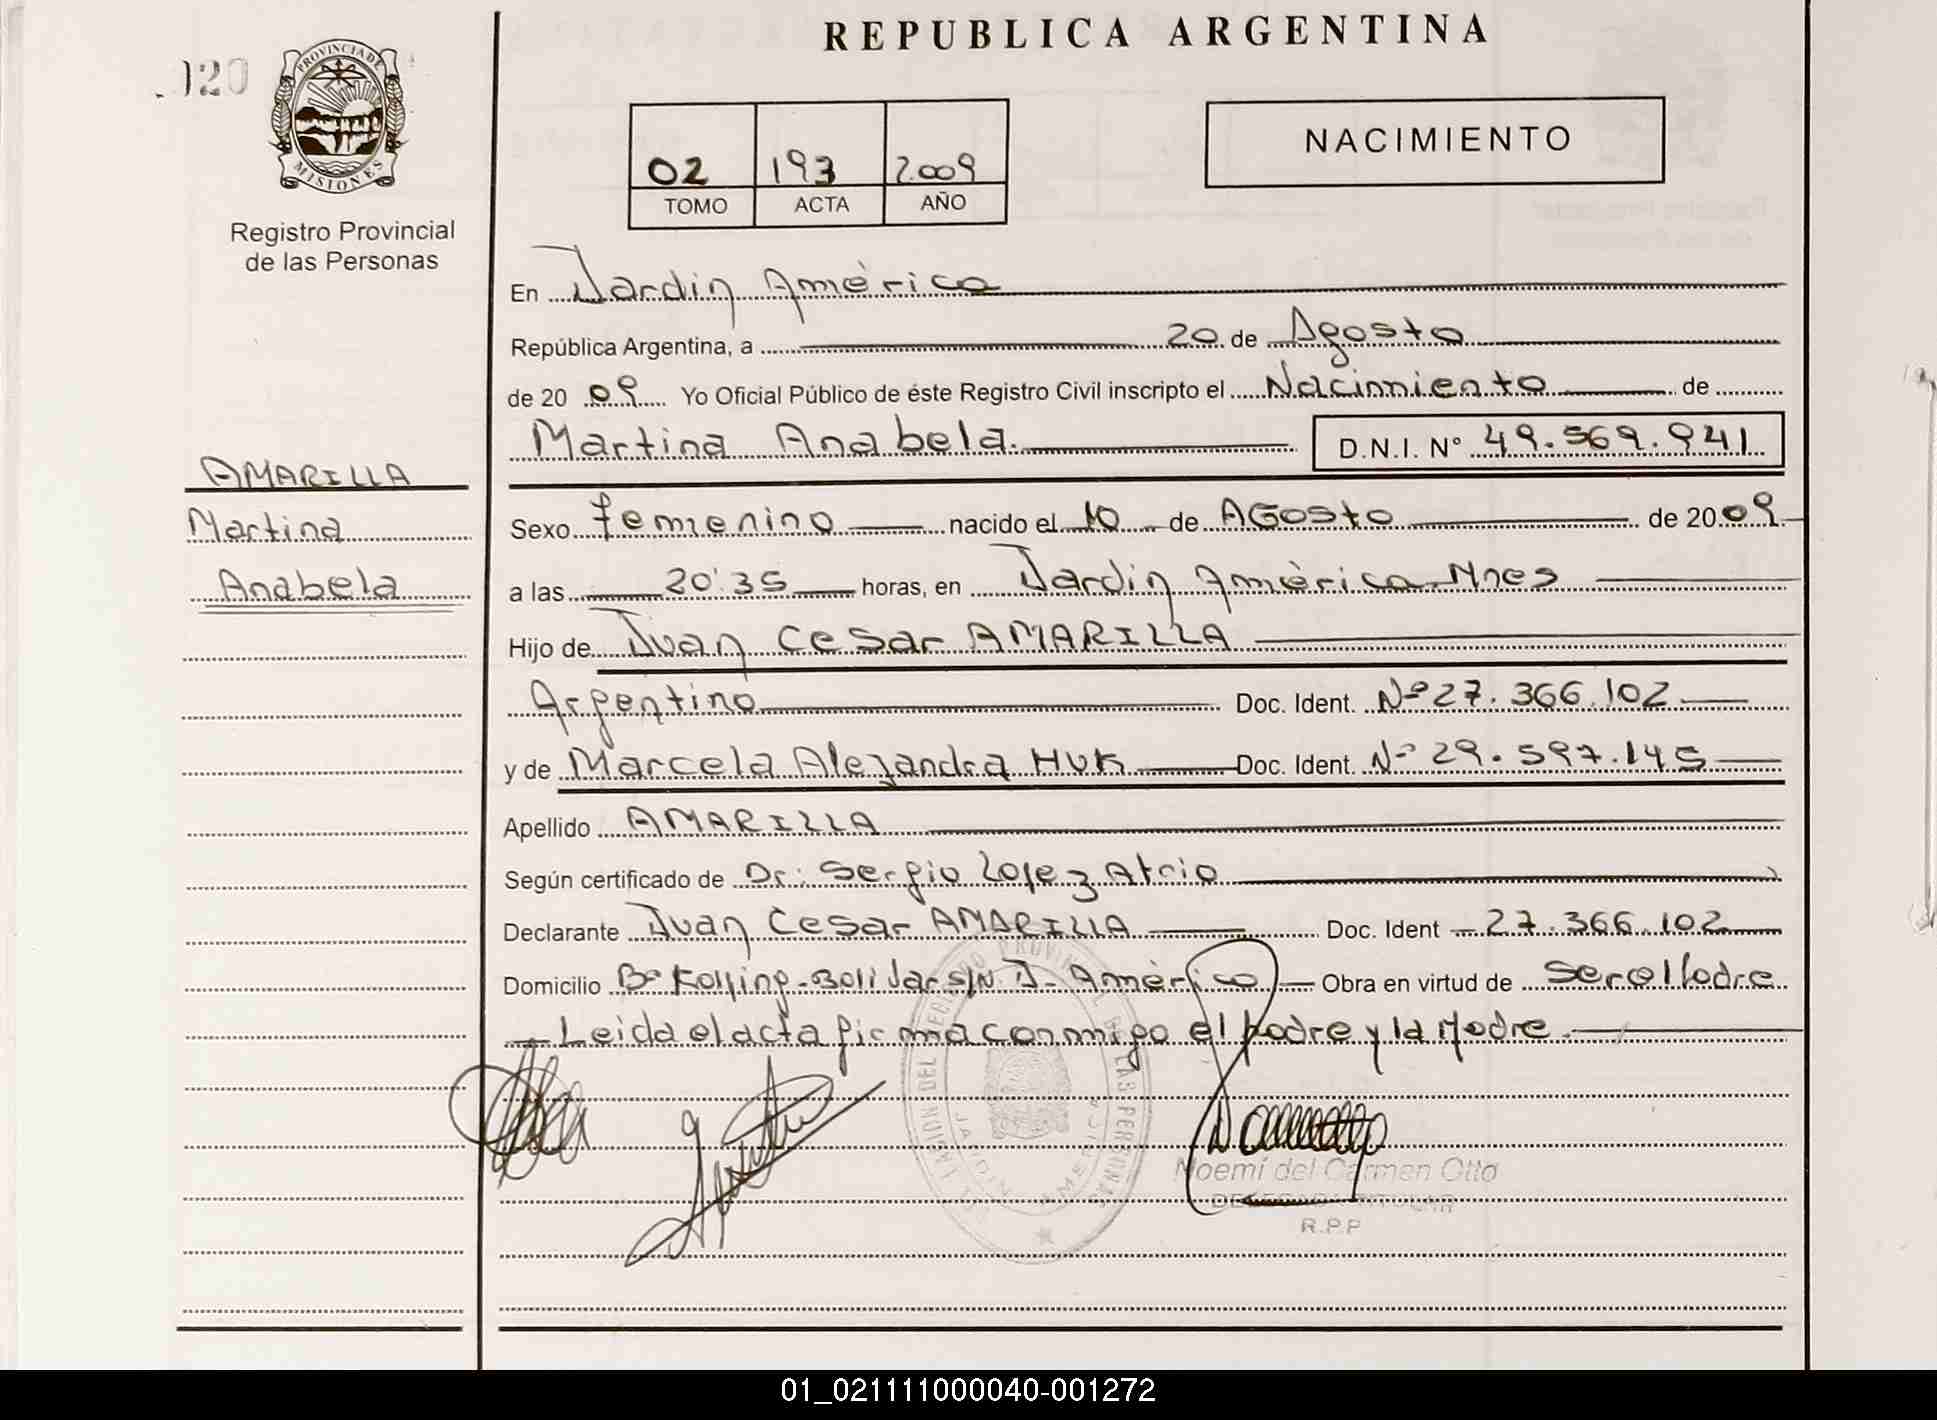 REPUBLICA ARGENTINA
020
PROVINCIA DE
MISIONES
Registro Provincial
de las Personas
02 193 2.009
TOMO ACTA AÑO
NACIMIENTO
En Jardin América
República Argentina, a 20 de Agosto
de 20 09 Yo Oficial Público de éste Registro Civil inscripto el Nacimiento de
Martina Anabela. D.N.I. N° 49.569.941
AMARILLA
Martina
Anabela
Sexo femenino nacido el 10 de AGosto de 20 09
a las 20:35 horas, en Jardin América-Mnes
Hijo de Juan Cesar AMARILLA
Argentino Doc. Ident. Nº 27.366.102
y de Marcela Alejandra HUK Doc. Ident. Nº 29.597.145
Apellido AMARILLA
Según certificado de Dr: Sergio Lopez Atrio
Declarante Juan Cesar AMARILLA Doc. Ident 27.366.102
Domicilio Bº Kolping-Bolivar s/N. J- América Obra en virtud de ser el Padre
Leida el acta firma conmigo el padre y la Madre
DE LAS PERSONAS
JARDIN AMERICA
Noemí del Carmen Otto
DELEGADA TITULAR
R.P.P
01_021111000040-001272